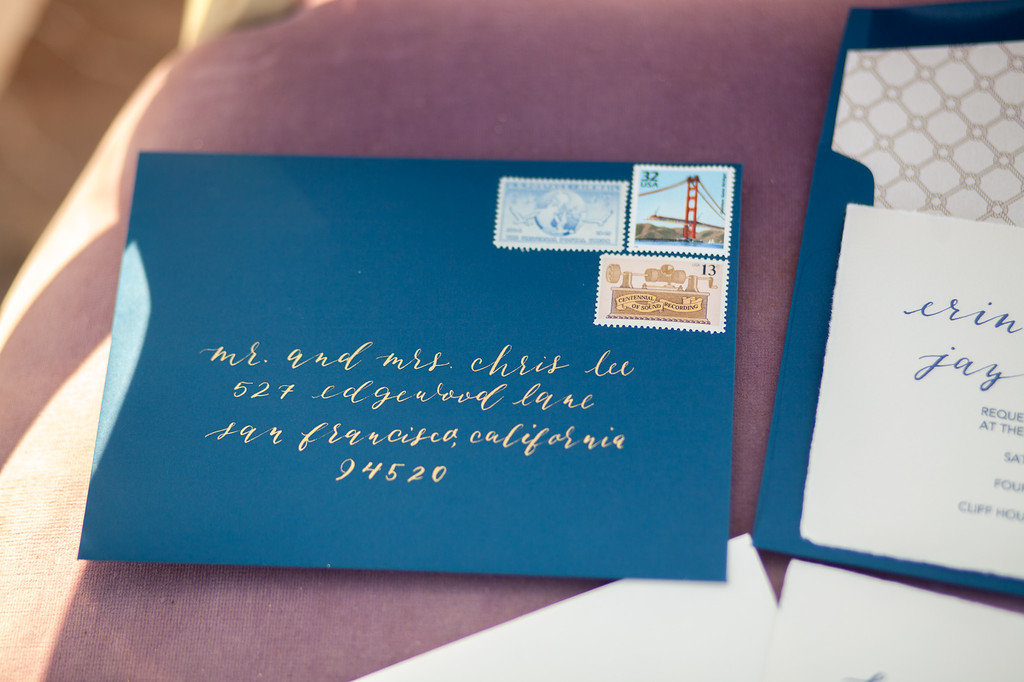 32
USA
13
CENTENNIAL
OF SOUND RECORDING
mr. and mrs. chris lee
527 edgewood lane
san francisco, california
94520
erin
jay
REQUE
AT THE
SAT
FOUR
CLIFF HOU